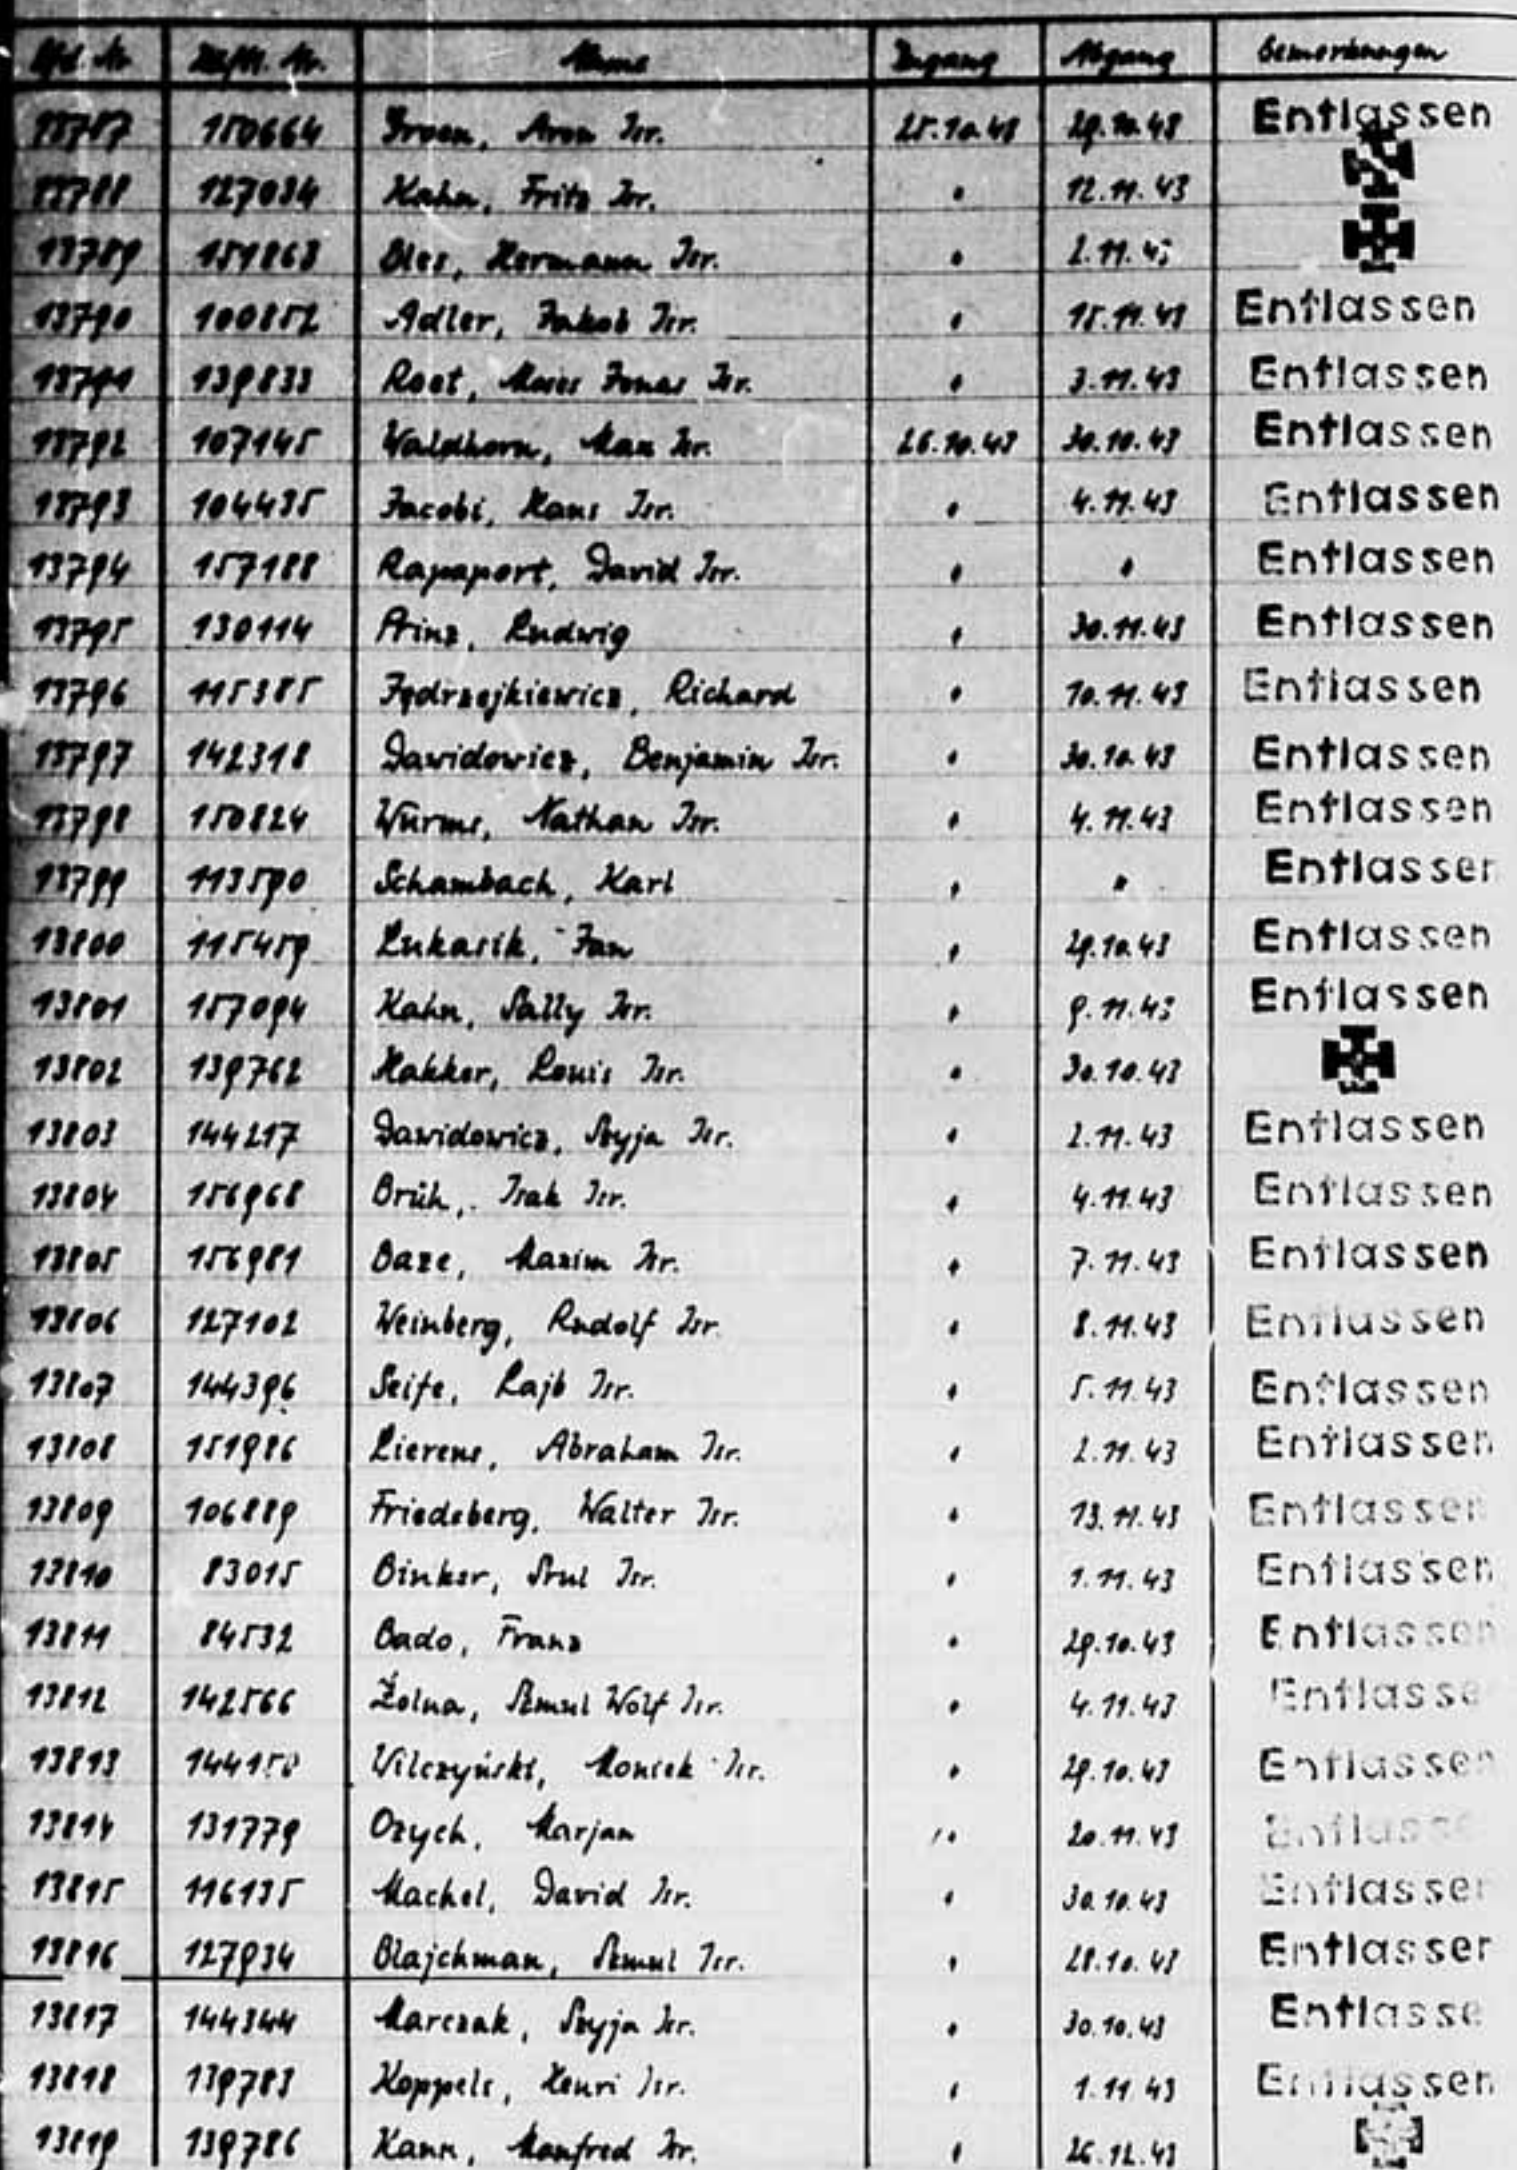 Lfd. Nr. Häftl. Nr. Name Zugang Abgang Bemerkungen
13787 150664 Groen, Aron Isr. 25.10.43 29.10.43 Entlassen
13788 127034 Kahn, Fritz Isr. " 12.11.43
13789 151863 Bles, Hermann Isr. " 2.11.43
13790 100852 Adler, Jakob Isr. " 15.11.43 Entlassen
13791 139833 Root, Moses Jonas Isr. " 3.11.43 Entlassen
13792 107145 Waldhorn, Max Isr. 26.10.43 30.10.43 Entlassen
13793 104435 Jacobi, Hans Isr. " 4.11.43 Entlassen
13794 157188 Rapaport, David Isr. " " Entlassen
13795 130114 Prinz, Ludwig " 30.11.43 Entlassen
13796 115385 Jędrzejkiewicz, Richard " 10.11.43 Entlassen
13797 142318 Dawidowicz, Benjamin Isr. " 30.10.43 Entlassen
13798 150824 Wurms, Nathan Isr. " 4.11.43 Entlassen
13799 113590 Schambach, Karl " " Entlassen
13800 115459 Lukasik, Jan " 29.10.43 Entlassen
13801 157094 Kahn, Sally Isr. " 9.11.43 Entlassen
13802 139762 Hakker, Louis Isr. " 30.10.43
13803 144217 Dawidowicz, Szyja Isr. " 2.11.43 Entlassen
13804 156968 Brüh, Isak Isr. " 4.11.43 Entlassen
13805 156981 Baze, Maxim Isr. " 7.11.43 Entlassen
13806 127102 Weinberg, Rudolf Isr. " 8.11.43 Entlassen
13807 144396 Seife, Lajb Isr. " 5.11.43 Entlassen
13808 151986 Lierens, Abraham Isr. " 2.11.43 Entlassen
13809 106889 Friedeberg, Walter Isr. " 13.11.43 Entlassen
13810 83015 Binker, Srul Isr. " 1.11.43 Entlassen
13811 84532 Bado, Franz " 29.10.43 Entlassen
13812 142566 Żolna, Szmul Wolf Isr. " 4.11.43 Entlasse
13813 144150 Wilczyński, Moniek Isr. " 29.10.43 Entlassen
13814 131779 Ozych, Marjan " 20.11.43 Entlasse
13815 116135 Machel, David Isr. " 30.10.43 Entlassen
13816 127934 Blajchman, Szmul Isr. " 28.10.43 Entlassen
13817 144344 Marczak, Szyja Isr. " 30.10.43 Entlasse
13818 139783 Koppels, Henri Isr. " 1.11.43 Entlassen
13819 139786 Kann, Manfred Isr. " 26.12.43